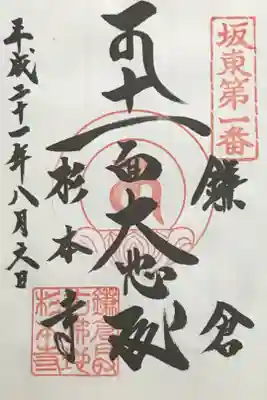 坂東第一番
鎌倉
十一面大悲殿
杉本寺
平成二十一年八月六日